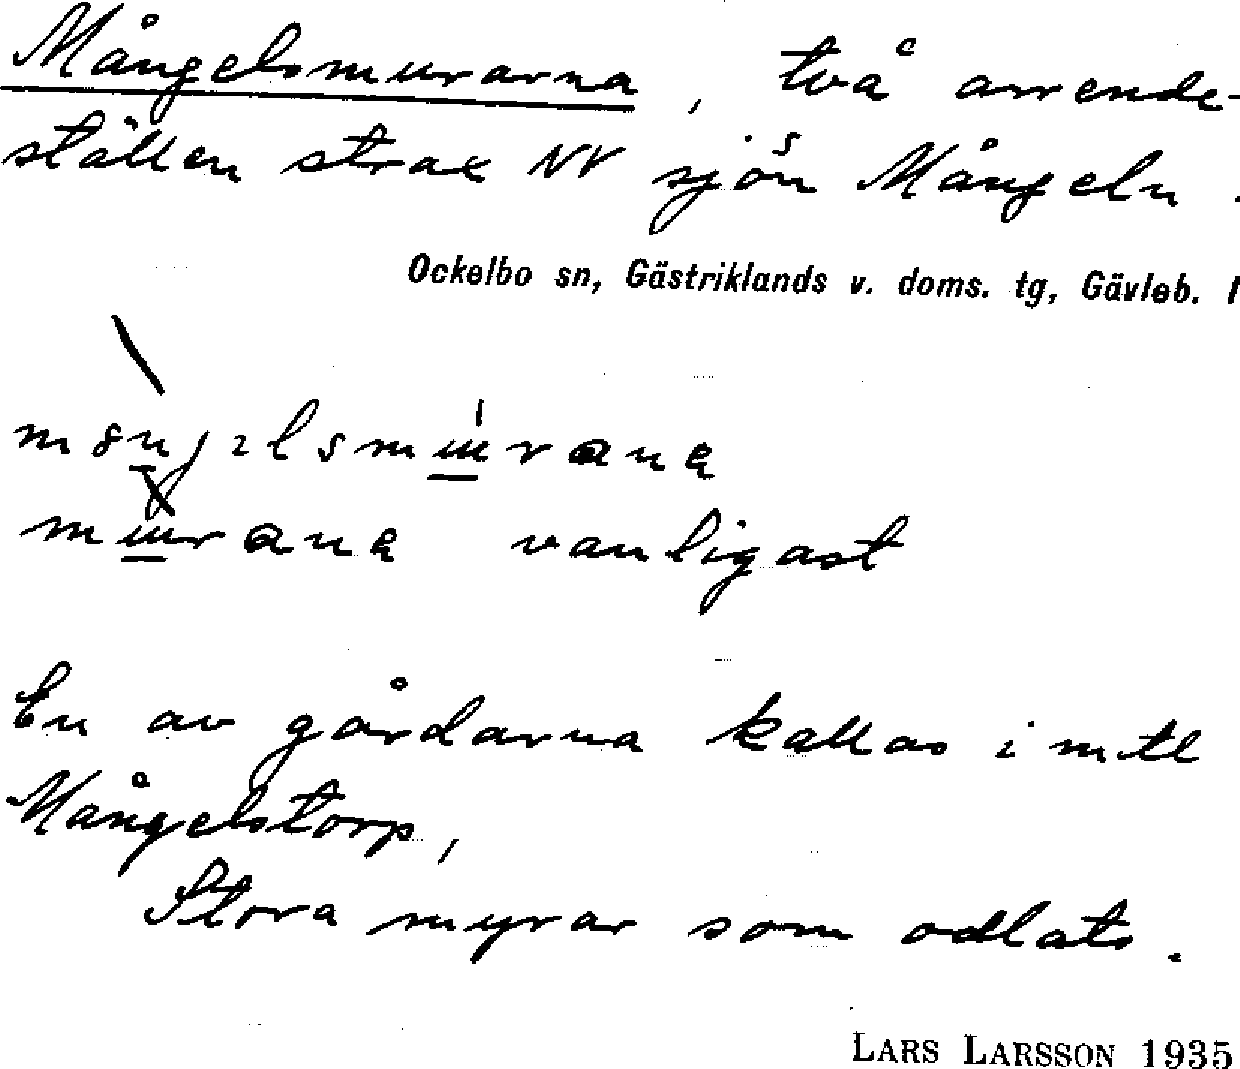 Mångelsmurarna, två arrende-
ställen strax NV sjön Mångeln.
Ockelbo sn, Gästriklands v. doms. tg, Gävleb. l
vanligast
En av gårdarna kallas i mtl
Mångelstorp,
Stora myrar som odlats.
LARS LARSSON 1935